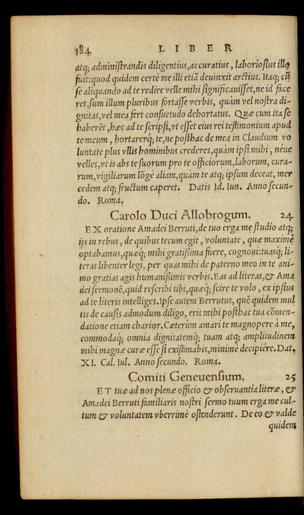 184 LIBER
atq; administrandis diligentius, accuratius, laboriosius illo
fuit: quod quidem certè me illi etiã deuinxit arctius. Itaq; cũ
se aliquando ad te redire velle mihi significauisset, ne id face
ret, sum illum pluribus fortasse verbis, quàm vel nostra di-
gnitas, vel mea fert consuetudo dehortatus. Quæ cum ita se
haberẽt, hæc ad te scripsi, vt esset eius rei testimonium apud
te meum, hortarerq; te, ne posthac de mea in Claudium vo
luntate plus vllis hominibus crederes, quàm ipsi mihi, néue
velles, vt is abs te suorum pro te officiorum, laborum, cura-
rum, vigiliarum longè aliam, quàm te atq; ipsum deceat, mer
cedem atq; fructum caperet. Datis Id. Iun. Anno secun-
do. Roma.
Carolo Duci Allobrogum. 24
EX oratione Amadei Berruti, de tuo erga me studio atq;
ijs in rebus, de quibus tecum egit, voluntate, quæ maximè
optabamus, quæq; mihi gratissima fuere, cognoui: tuasq; li-
teras libenter legi, per quas mihi de paterno meo in te ani-
mo gratias agis humanissimis verbis. Eas ad literas, & Ama
dei sermonẽ, quid rescribi tibi, quæq; scire te volo, ex ipsius
ad te literis intelliges. Ipse autem Berrutus, quẽ quidem mul
tis de causis admodum diligo, erit mihi posthac tua cõmen-
datione etiam charior. Cæterùm amari te magnopere à me,
commodaq; omnia dignitatemq; tuam atq; amplitudinem
mihi magnæ curæ esse si existimabis, minimè decipière. Dat.
XI. Cal. iul. Anno secundo. Roma.
Comiti Geneuensium. 25
ET tuæ ad nos plenæ officio & obseruantia literæ, &
Amadei Berruti familiaris nostri sermo tuum erga me cul-
tum & voluntatem vberrimè ostenderunt. De eo & valde
quidem